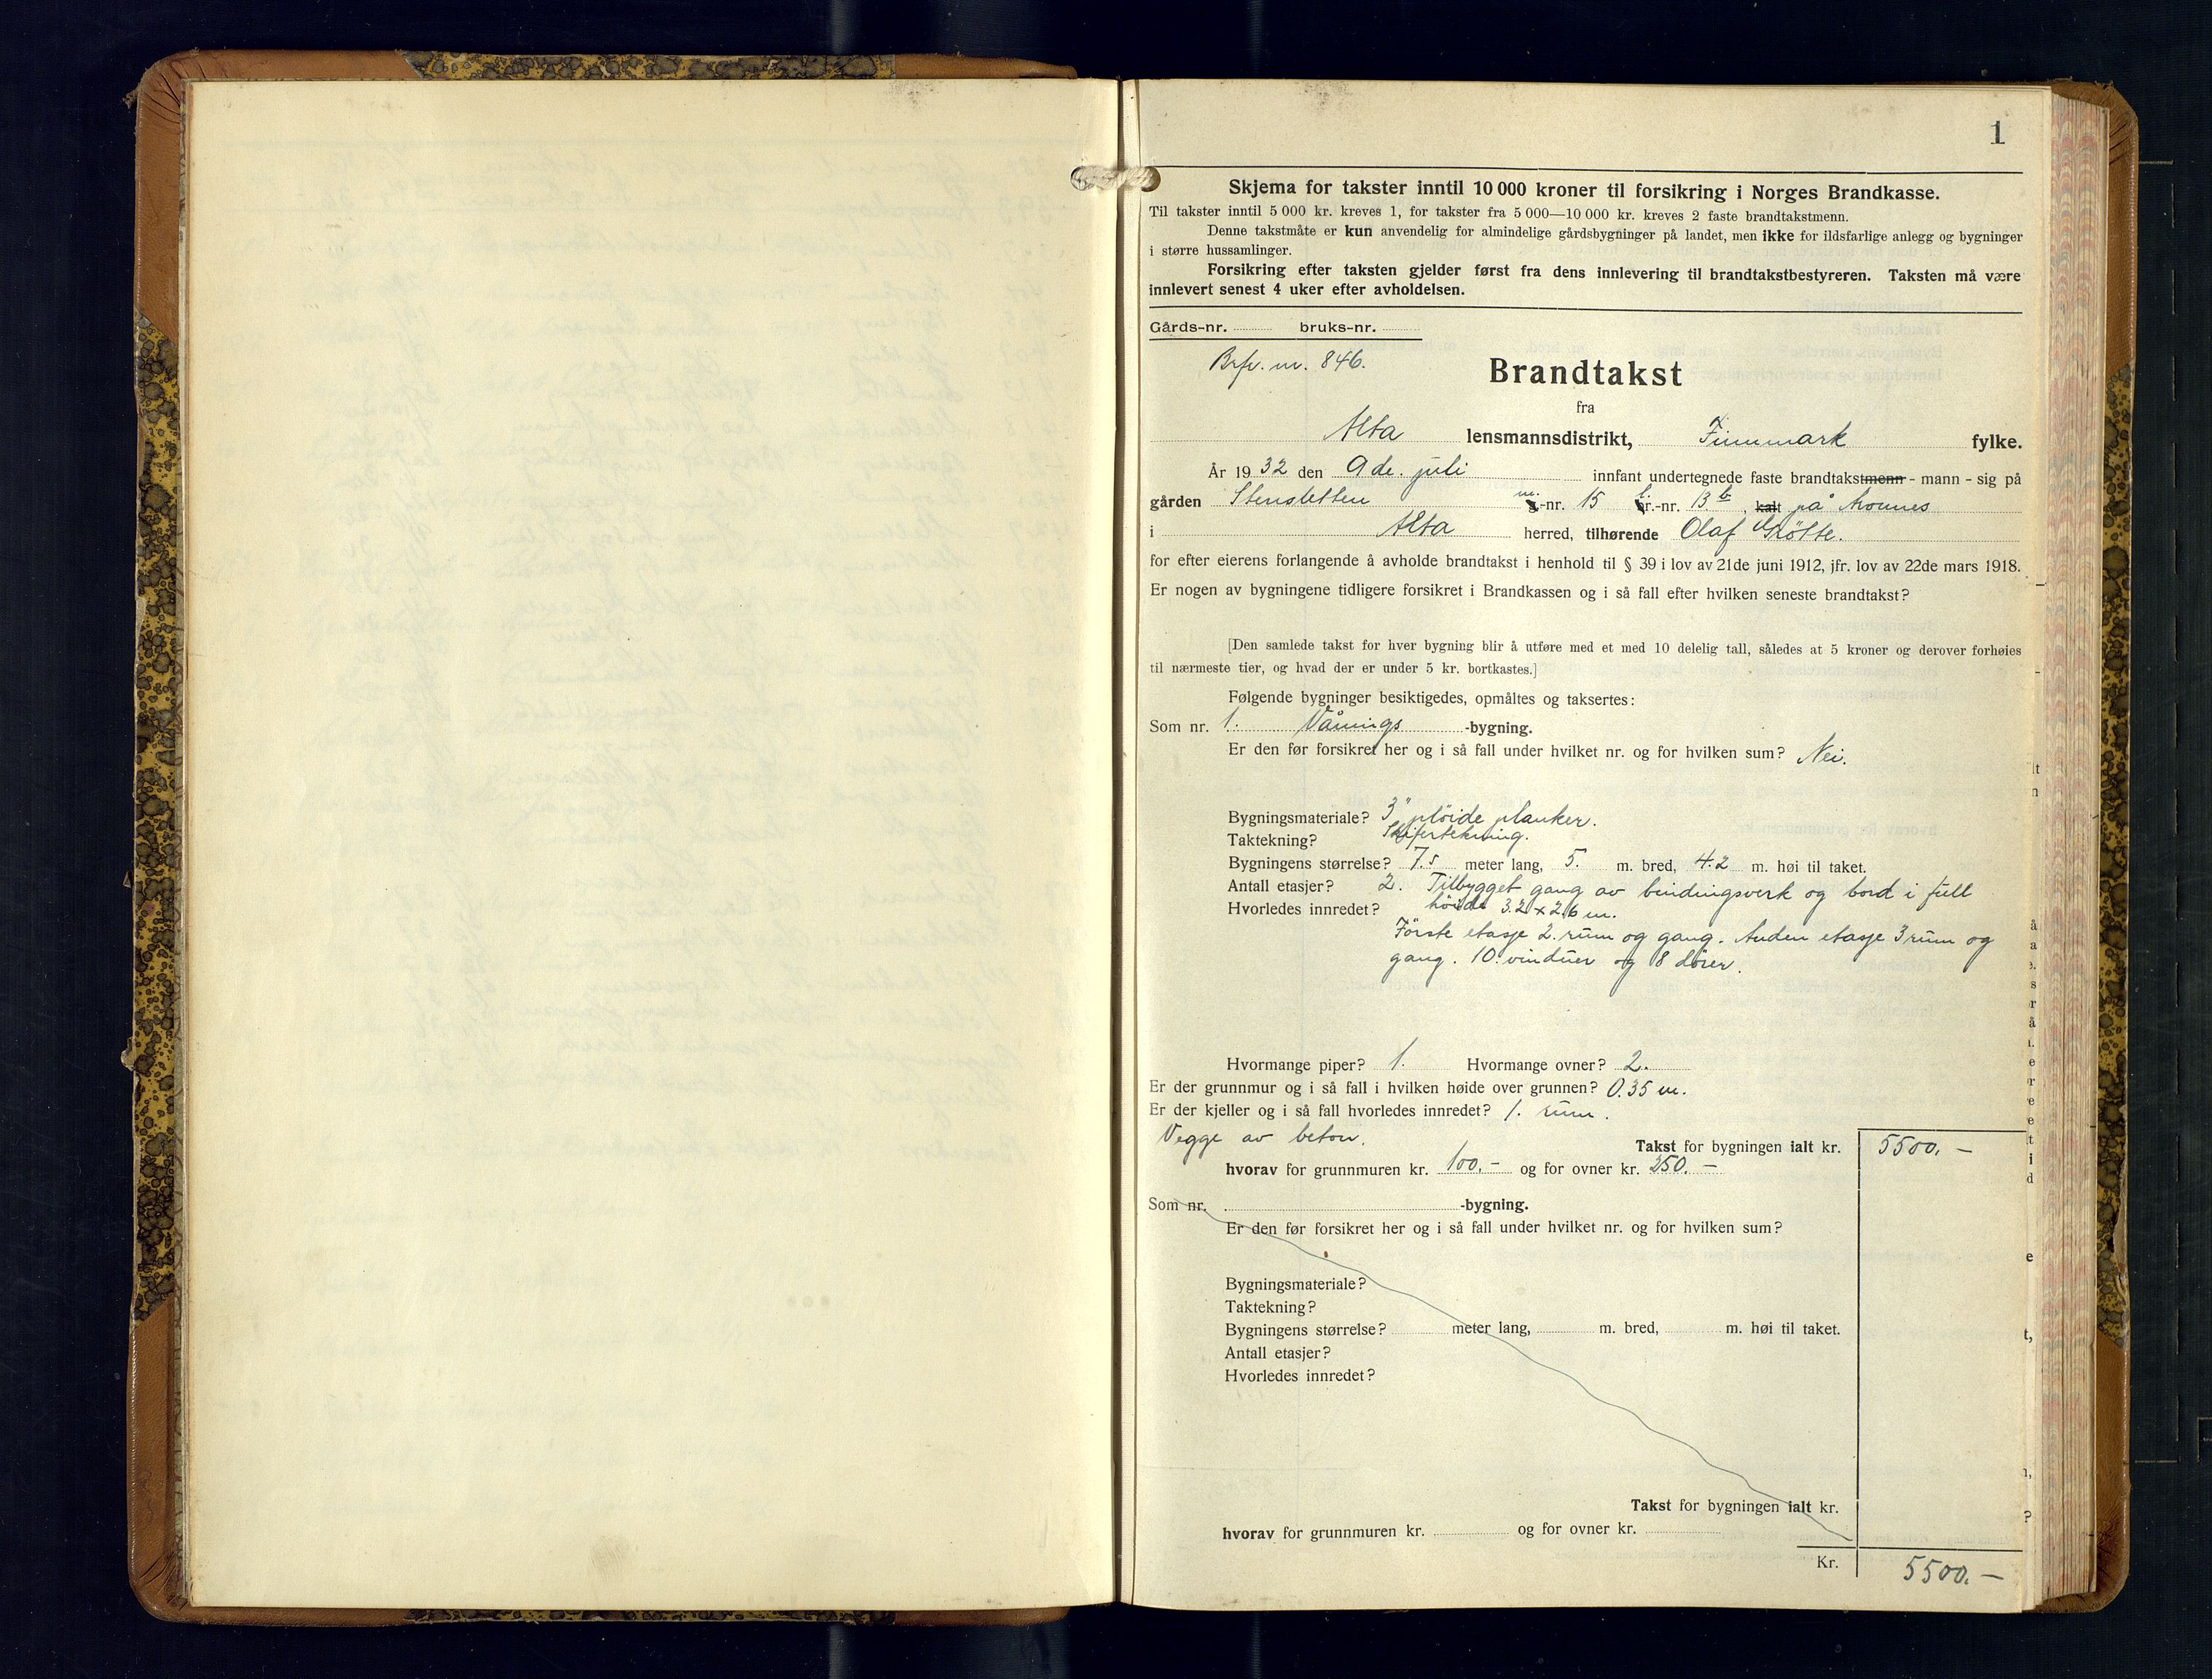 1
Skjema for takster inntil 10 000 kroner til forsikring i Norges Brandkasse.
Til takster inntil 5 000 kr. kreves 1, for takster fra 5 000—10 000 kr. kreves 2 faste brandtakstmenn.
Denne takstmåte er kun anvendelig for almindelige gårdsbygninger på landet, men ikke for ildsfarlige anlegg og bygninger
i større hussamlinger.
Forsikring efter taksten gjelder først fra dens innlevering til brandtakstbestyreren. Taksten må være
innlevert senest 4 uker efter avholdelsen.
Gårds-nr. bruks-nr.
Brfr. nr. 846.
Brandtakst
fra
Alta lensmannsdistrikt, Finnmark fylke.
År 1932 den 9de. juli innfant undertegnede faste brandtakstmenn - mann - sig på
gården Stensletten m.-nr. 15 -nr. 13 b, kalt på
i Alta herred, tilhørende Olaf Grötte.
for efter eierens forlangende å avholde brandtakst i henhold til § 39 i lov av 21de juni 1912, jfr. lov av 22de mars 1918.
Er nogen av bygningene tidligere forsikret i Brandkassen og i så fall efter hvilken seneste brandtakst?
[Den samlede takst for hver bygning blir å utføre med et med 10 delelig tall, således at 5 kroner og derover forhøies
til nærmeste tier, og hvad der er under 5 kr. bortkastes.]
Følgende bygninger besiktigedes, opmåltes og taksertes:
Som nr. 1. Vånings -bygning.
Er den før forsikret her og i så fall under hvilket nr. og for hvilken sum? Nei.
Bygningsmateriale? 3" plöide planker.
Taktekning? Skifertekning.
Bygningens størrelse? 7.5 meter lang, 5. m. bred, 4.2 m. høi til taket.
Antall etasjer? 2. Tilbygget gang av bindingsverk og bord i full
Hvorledes innredet? höide 3.2 x 2.6 m.
Förste etasje 2. rum og gang. Anden etasje 3 rum og
gang. 10. vinduer og 8 dörer.
Hvormange piper? 1. Hvormange ovner? 2.
Er der grunnmur og i så fall i hvilken høide over grunnen? 0.35 m.
Er der kjeller og i så fall hvorledes innredet? 1. rum.
Vegge av beton.
Takst for bygningen ialt kr. 5500.—
hvorav for grunnmuren kr. 100.— og for ovner kr. 250.—
Som nr. -bygning.
Er den før forsikret her og i så fall under hvilket nr. og for hvilken sum?
Bygningsmateriale?
Taktekning?
Bygningens størrelse? meter lang, m. bred, m. høi til taket.
Antall etasjer?
Hvorledes innredet?
Takst for bygningen ialt kr.
hvorav for grunnmuren kr. og for ovner kr.
Kr. 5500.—